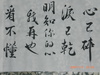 心已碎
淚已乾
明知你的心
我再也
看不懂